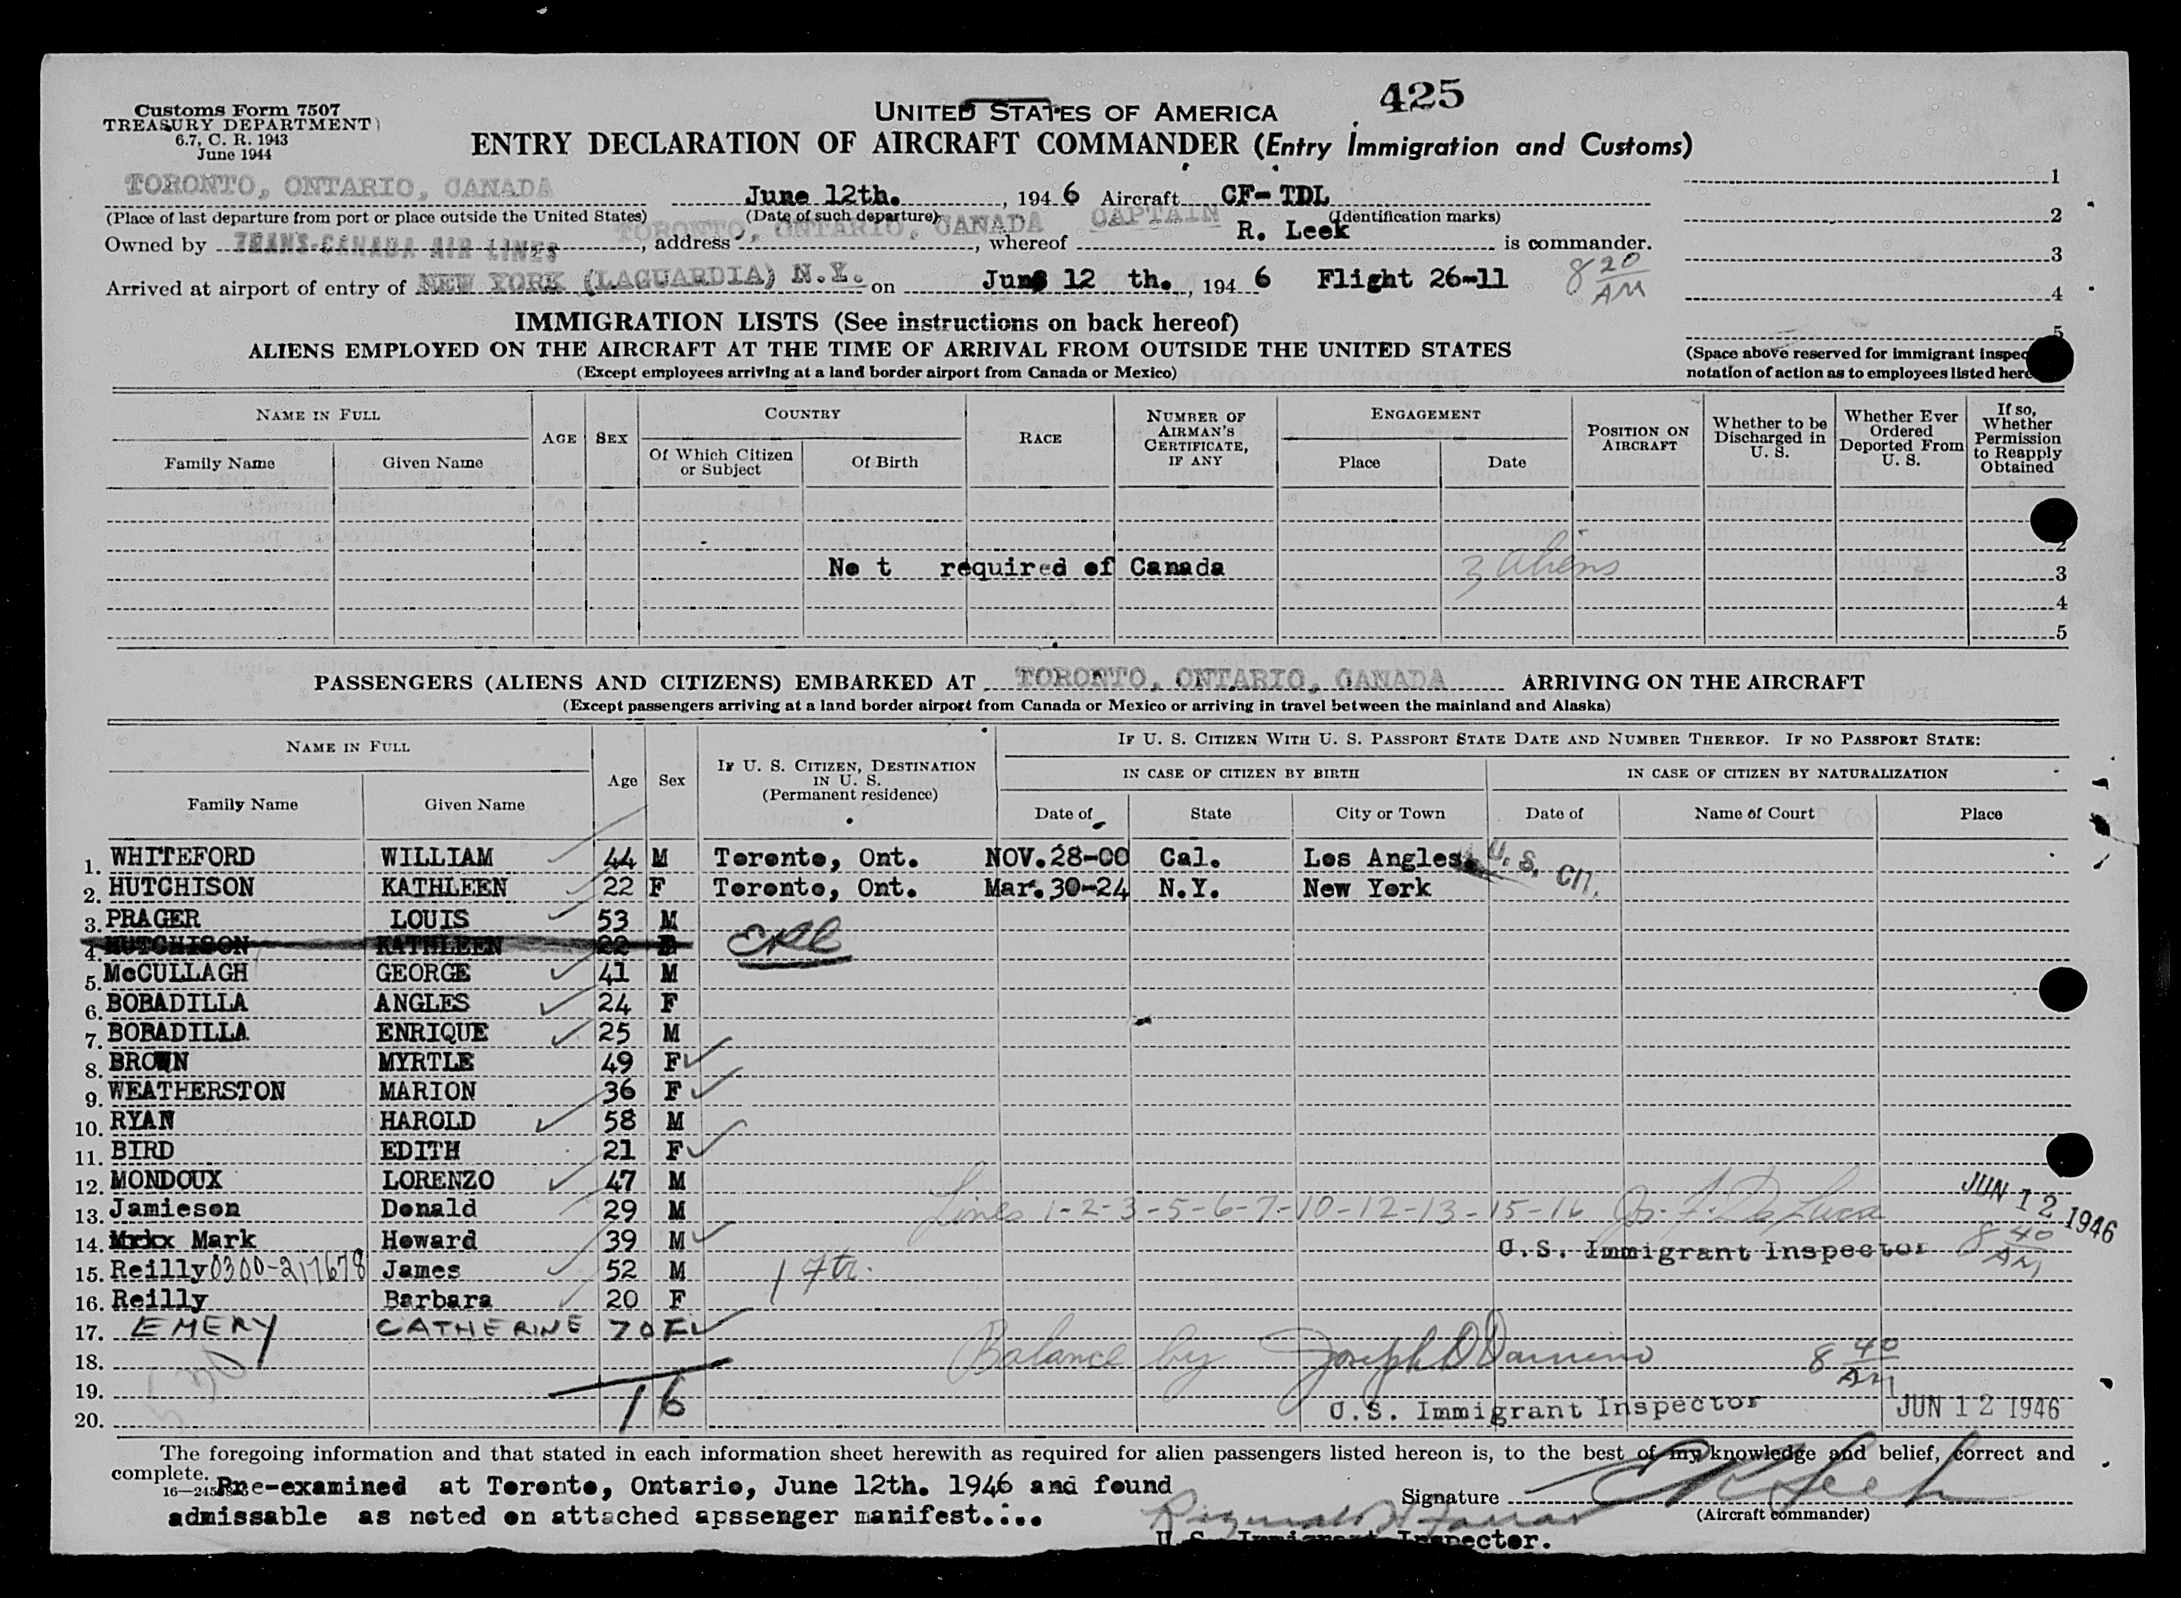 425
Customs Form 7507
TREASURY DEPARTMENT
6.7, C. R. 1943
June 1944
UNITED STATES OF AMERICA
ENTRY DECLARATION OF AIRCRAFT COMMANDER (Entry Immigration and Customs)
TORONTO, ONTARIO, CANADA June 12th. , 194 6 Aircraft CF-TDL
(Place of last departure from port or place outside the United States) (Date of such departure) (Identification marks)
Owned by TRANS-CANADA AIR LINES , address TORONTO, ONTARIO, CANADA , whereof CAPTAIN R. Leek is commander.
Arrived at airport of entry of NEW YORK (LAGUARDIA) N.Y. on June 12 th. , 194 6 Flight 26-11 8 20 AM
1
2
3
4
5
(Space above reserved for immigrant inspec
notation of action as to employees listed here
IMMIGRATION LISTS (See instructions on back hereof)
ALIENS EMPLOYED ON THE AIRCRAFT AT THE TIME OF ARRIVAL FROM OUTSIDE THE UNITED STATES
(Except employees arriving at a land border airport from Canada or Mexico)
NAME IN FULL
Family Name Given Name
AGE SEX
COUNTRY
Of Which Citizen or Subject Of Birth
RACE
NUMBER OF AIRMAN'S CERTIFICATE, IF ANY
ENGAGEMENT
Place Date
POSITION ON AIRCRAFT
Whether to be Discharged in U. S.
Whether Ever Ordered Deported From U. S.
If so, Whether Permission to Reapply Obtained
2
No t required of Canada 3 aliens 3
4
5
PASSENGERS (ALIENS AND CITIZENS) EMBARKED AT TORONTO, ONTARIO, CANADA ARRIVING ON THE AIRCRAFT
(Except passengers arriving at a land border airport from Canada or Mexico or arriving in travel between the mainland and Alaska)
NAME IN FULL
Family Name Given Name
Age Sex
IF U. S. CITIZEN, DESTINATION IN U. S. (Permanent residence)
IF U. S. CITIZEN WITH U. S. PASSPORT STATE DATE AND NUMBER THEREOF. IF NO PASSPORT STATE:
IN CASE OF CITIZEN BY BIRTH IN CASE OF CITIZEN BY NATURALIZATION
Date of State City or Town Date of Name of Court Place
1. WHITEFORD WILLIAM 44 M Toronto, Ont. NOV.28-00 Cal. Los Angles. U. S. CIT.
2. HUTCHISON KATHLEEN 22 F Toronto, Ont. Mar.30-24 N.Y. New York
3. PRAGER LOUIS 53 M
4. HUTCHISON KATHLEEN 22 F
5. McCULLAGH GEORGE 41 M
6. BOBADILLA ANGLES 24 F
7. BOBADILLA ENRIQUE 25 M
8. BROWN MYRTLE 49 F
9. WEATHERSTON MARION 36 F
10. RYAN HAROLD 58 M
11. BIRD EDITH 21 F
12. MONDOUX LORENZO 47 M
JUN 12 1946
13. Jamieson Donald 29 M Lines 1-2-3-5-6-7-10-12-13-15-16 Jos. F. De Luca
14. Mark Howard 39 M U.S. Immigrant Inspector 8 40 AM
15. Reilly 0300-217678 James 52 M
16. Reilly Barbara 20 F
17. EMERY CATHERINE 70 F
18. Balance by Joseph D 8 40 AM
19.
16
20. U.S. Immigrant Inspector JUN 12 1946
The foregoing information and that stated in each information sheet herewith as required for alien passengers listed hereon is, to the best of my knowledge and belief, correct and
complete.
Pre-examined at Toronto, Ontario, June 12th. 1946 and found
admissable as noted on attached apssenger manifest....
Signature R Leek
(Aircraft commander)
U.S. Immigrant Inspector.